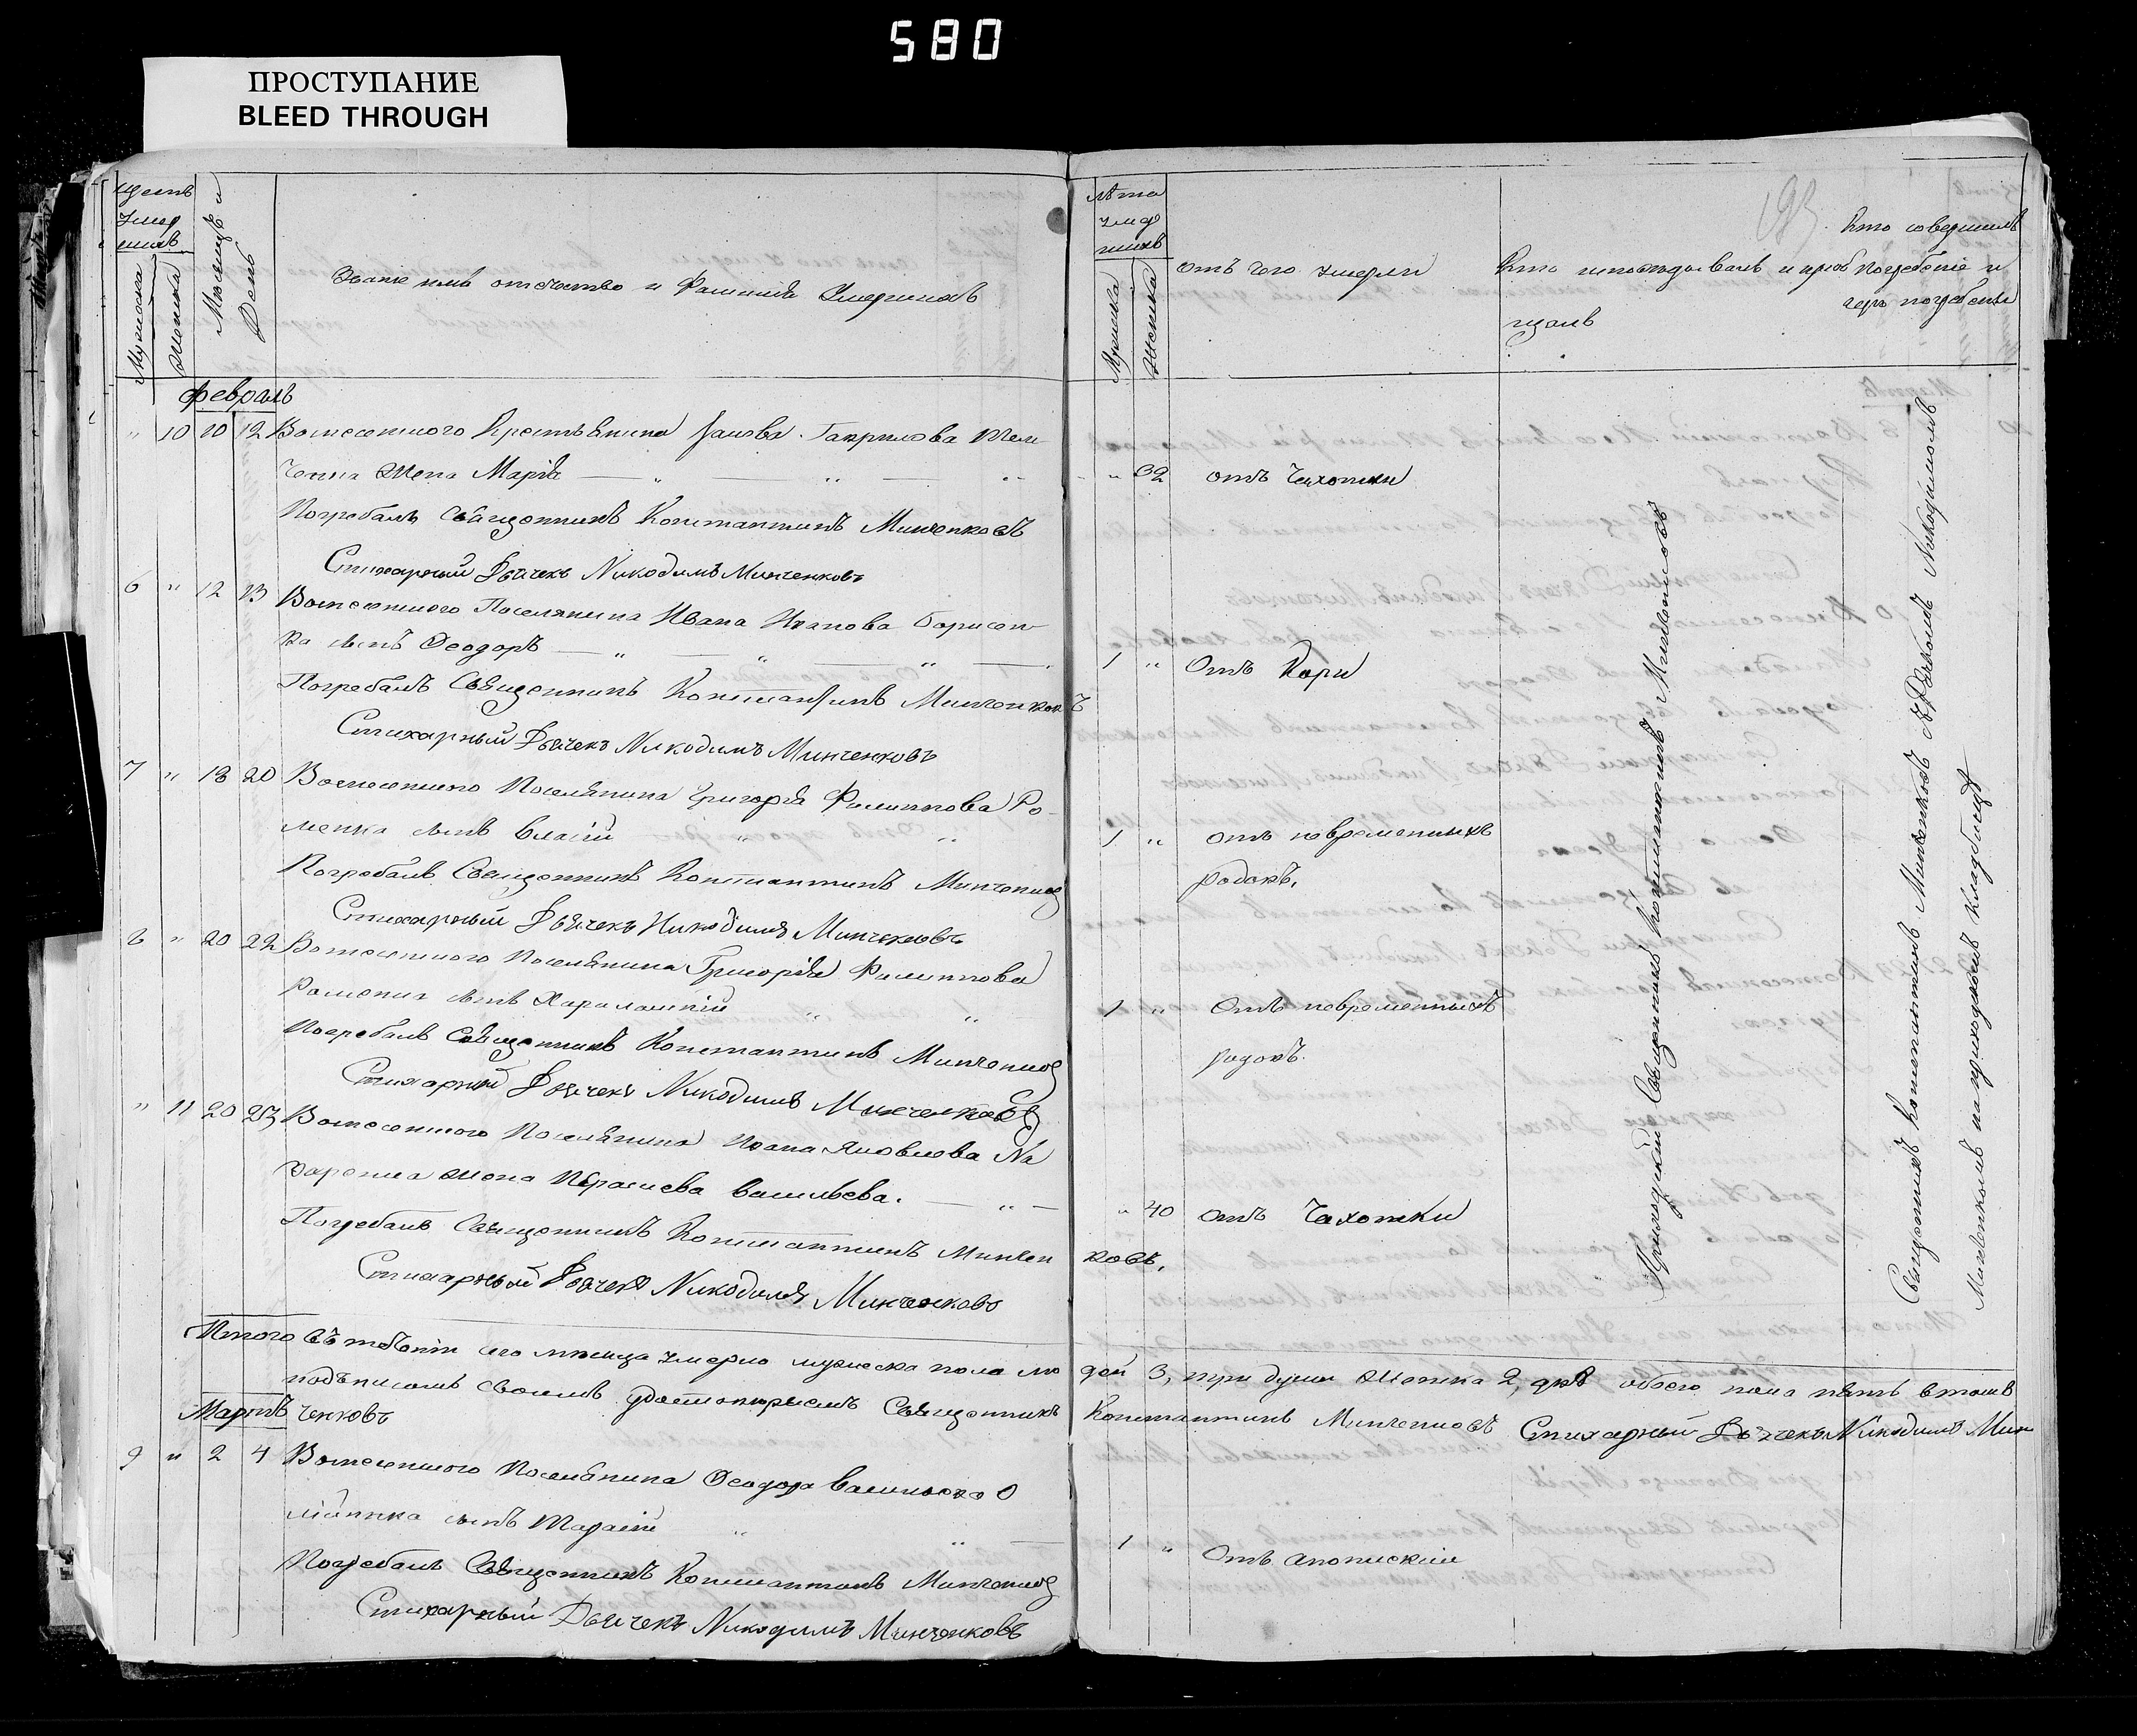 580
ПРОСТУПАНИЕ
BLEED THROUGH
193
Щетъ умершихъ
Мужеска
Женска
Месяцъ и День
Званіе имя отечество и Фамилія Умершихъ
Лѣта умершихъ
Мужеска
Женска
отъ чего умерли
Кто исповѣдывалъ и пріобщалъ
Кто совершилъ погребеніе и гдѣ погребены
Февраль
" 10 10 12 Вознесенского Крестьянина Гаврилова
жена Марія " 32 отъ Чахотки
Погребалъ Священникъ Константинъ Минченковъ
Стихарный Дьячекъ Никодимъ Минченковъ
6 " 12 13 Вознесенского Поселянина Ивана Иванова Борисен
ка сынъ Феодоръ 1 " Отъ Кори
Погребалъ Священникъ Константинъ Минченковъ
Стихарный Дьячекъ Никодимъ Минченковъ
7 " 18 20 Вознесенского Поселянина Григорія Филиппова Ро-
менка сынъ Власій 1 " отъ невременныхъ
родовъ,
Погребалъ Священникъ Константинъ Минченков
Стихарный Дьячекъ Никодимъ Минченковъ
8 " 20 22 Вознесенского Поселянина Григорія Филиппова
Роменка сынъ Харалампій 1 " Отъ невременныхъ
родовъ.
Погребалъ Священникъ Константинъ Минченков
Стихарный Дьячекъ Никодимъ Минченковъ
" 11 20 23 Вознесенского Поселянина Ивана Яковлева
жена Васильева. " 40 отъ Чахотки
Погребалъ Священникъ Константинъ Минчен ковъ,
Стихарный Дьячекъ Никодимъ Минченковъ
Приходскій Священникъ Константинъ Минченковъ
Священникъ Константинъ Минченковъ съ Дьячкомъ Никодимомъ
Минченковымъ на приходскомъ кладбищѣ
Итого въ теченіи сего месяца умерло мужеска пола лю дей 3, три души женска 2, двѣ обоего пола пять в томъ
подъписомъ своимъ удостоверяемъ Священникъ Константинъ Минченковъ Стихарный Дьячекъ Никодимъ Мин
ченковъ
Мартъ
9 " 2 4 Вознесенского Поселянина Феодора Васильева О
сынъ Тарасій 1 " Отъ
Погребалъ Священникъ Константинъ Минченков
Стихарный Дьячекъ Никодимъ Минченковъ